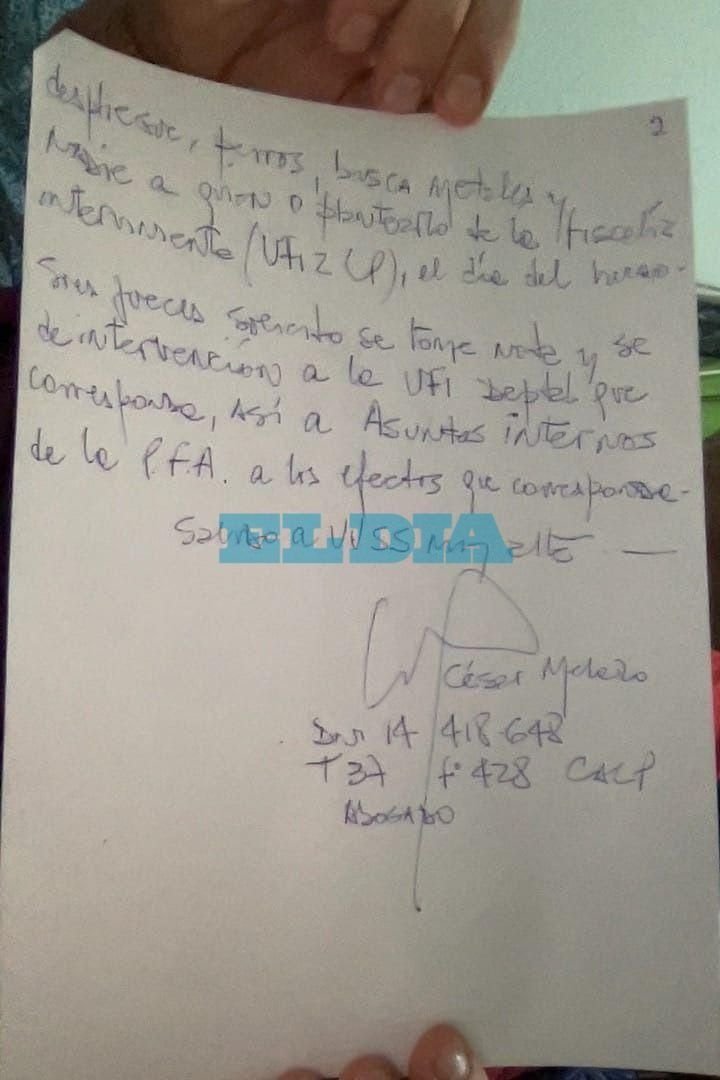 2
despliegue, perros, busca metales y
nadie a quien o plantearlo de la fiscalía
interviniente (UFI 2 LP), el día del hecho-
Sres jueces solicito se tome nota y se
de intervención a la UFI Deptal que
corresponda, Así a Asuntos internos
de la P.F.A. a los efectos que corresponda-
Saludo a VVSS muy atte —
EL DIA
César Melazo
DNI 14 418.648
T 37 f° 428 CALP
ABOGADO